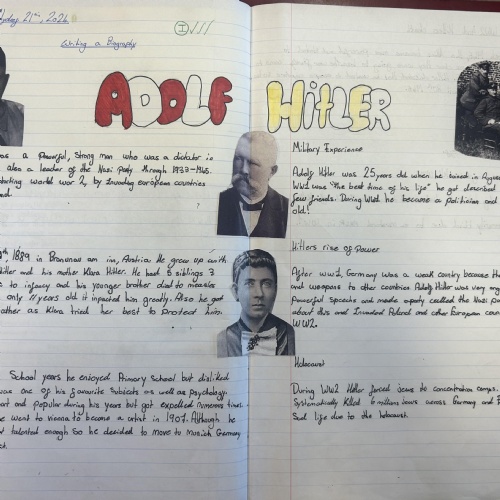 21st, 2024
Writing a Biography
ADOLF HITLER
was a Powerful, Strong man who was a dictator in
also a leader of the Nazi Party through 1933-1945.
world war 2, by invading european countries
1889 in Braunau am inn, Austria He grew up with
Hitler and his mother Klara Hitler. He had 5 siblings 3
to infancy and his younger brother died to measles
only 11 years old it impacted him greatly. Also he got
father as Klara tried her best to protect him.
School years he enjoyed Primary School but disliked
was one of his favourite subjects as well as psychology.
and popular during his years but got expelled numerous times.
he went to vienna to become a artist in 1907. Although he
talented enough so he decided to move to Munich Germany
Military Experience
Adolf Hitler was 25 years old when he joined in August
WW1 was "the best time of his life" he got described
few friends. During WW1 he became a politician and
old!
Hitlers rise of Power
After WW1, Germany was a weak country because
and weapons to other countries Adolf Hitler was very
Powerful Speechs and made a party called the Nazi
about this and invaded Poland and other European
WW2.
Holocaust
During WW2 Hitler forced Jews to concentration camps.
Systematically Killed 6 millions Jews across Germany and
Sad life due to the holocaust.